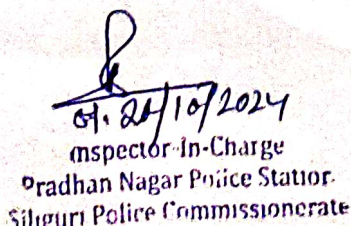 20/10/2024
Inspector-In-Charge
Pradhan Nagar Police Station
Siliguri Police Commissionerate